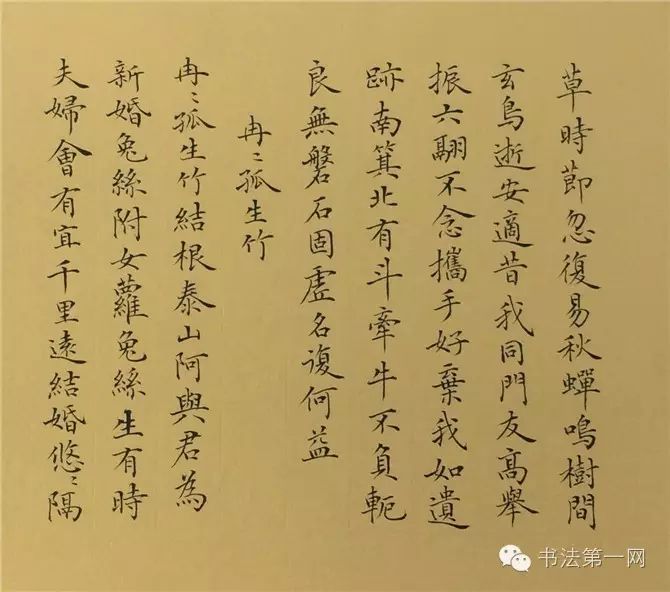 草時節忽復易秋蟬鳴樹間
玄鳥逝安適昔我同門友高舉
振六翮不念攜手好棄我如遺
跡南箕北有斗牽牛不負軛
良無磐石固虛名復何益
冉〻孤生竹
冉〻孤生竹結根泰山阿與君為
新婚兔絲附女蘿兔絲生有時
夫婦會有宜千里遠結婚悠〻隔
书法第一网